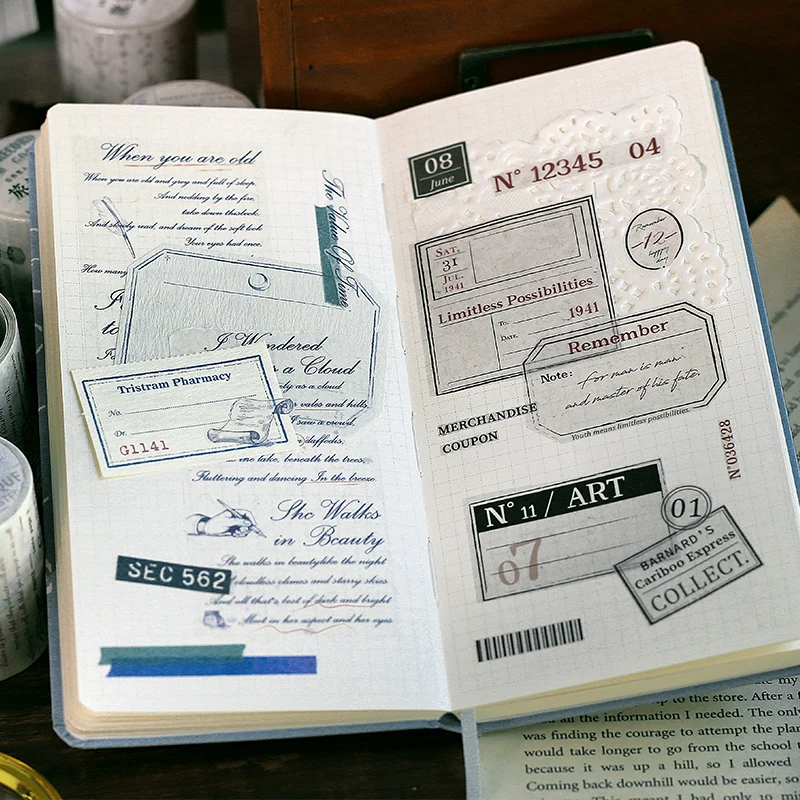 When you are old
When you are old and grey and full of sleep,
And nodding by the fire,
take down this book,
And slowly read, and dream of the soft look
Your eyes had once,
How many
The Value Of Time
I Wondered
a Cloud
as a cloud
vales and hills,
I saw a crowd,
daffodils.
lake, beneath the trees,
Fluttering and dancing In the breeze
Tristram Pharmacy
No.
Dr.
G1141
She Walks
in Beauty
She walks in beautylike the night
cloudless climes and starry skies
And all that's best of dark and bright
Meet in her aspect and her eyes
SEC 562
08
June
N° 12345 04
Remember
-12-
day
SAT.
31
JUL.
1941
Limitless Possibilities
To.
1941
Date.
Remember
Note: For man is man
and master of his fate.
Youth means limitless possibilities.
MERCHANDISE
COUPON
N°036428
N° 11 / ART
07
01
BARNARD'S
Cariboo Express
COLLECT.
my
up to the store. After a f
all the information I needed. The only
was finding the courage to attempt the plan
would take longer to go from the school t
because it was up a hill, so I allowed
Coming back downhill would be easier, so
This meant I had only 10 min